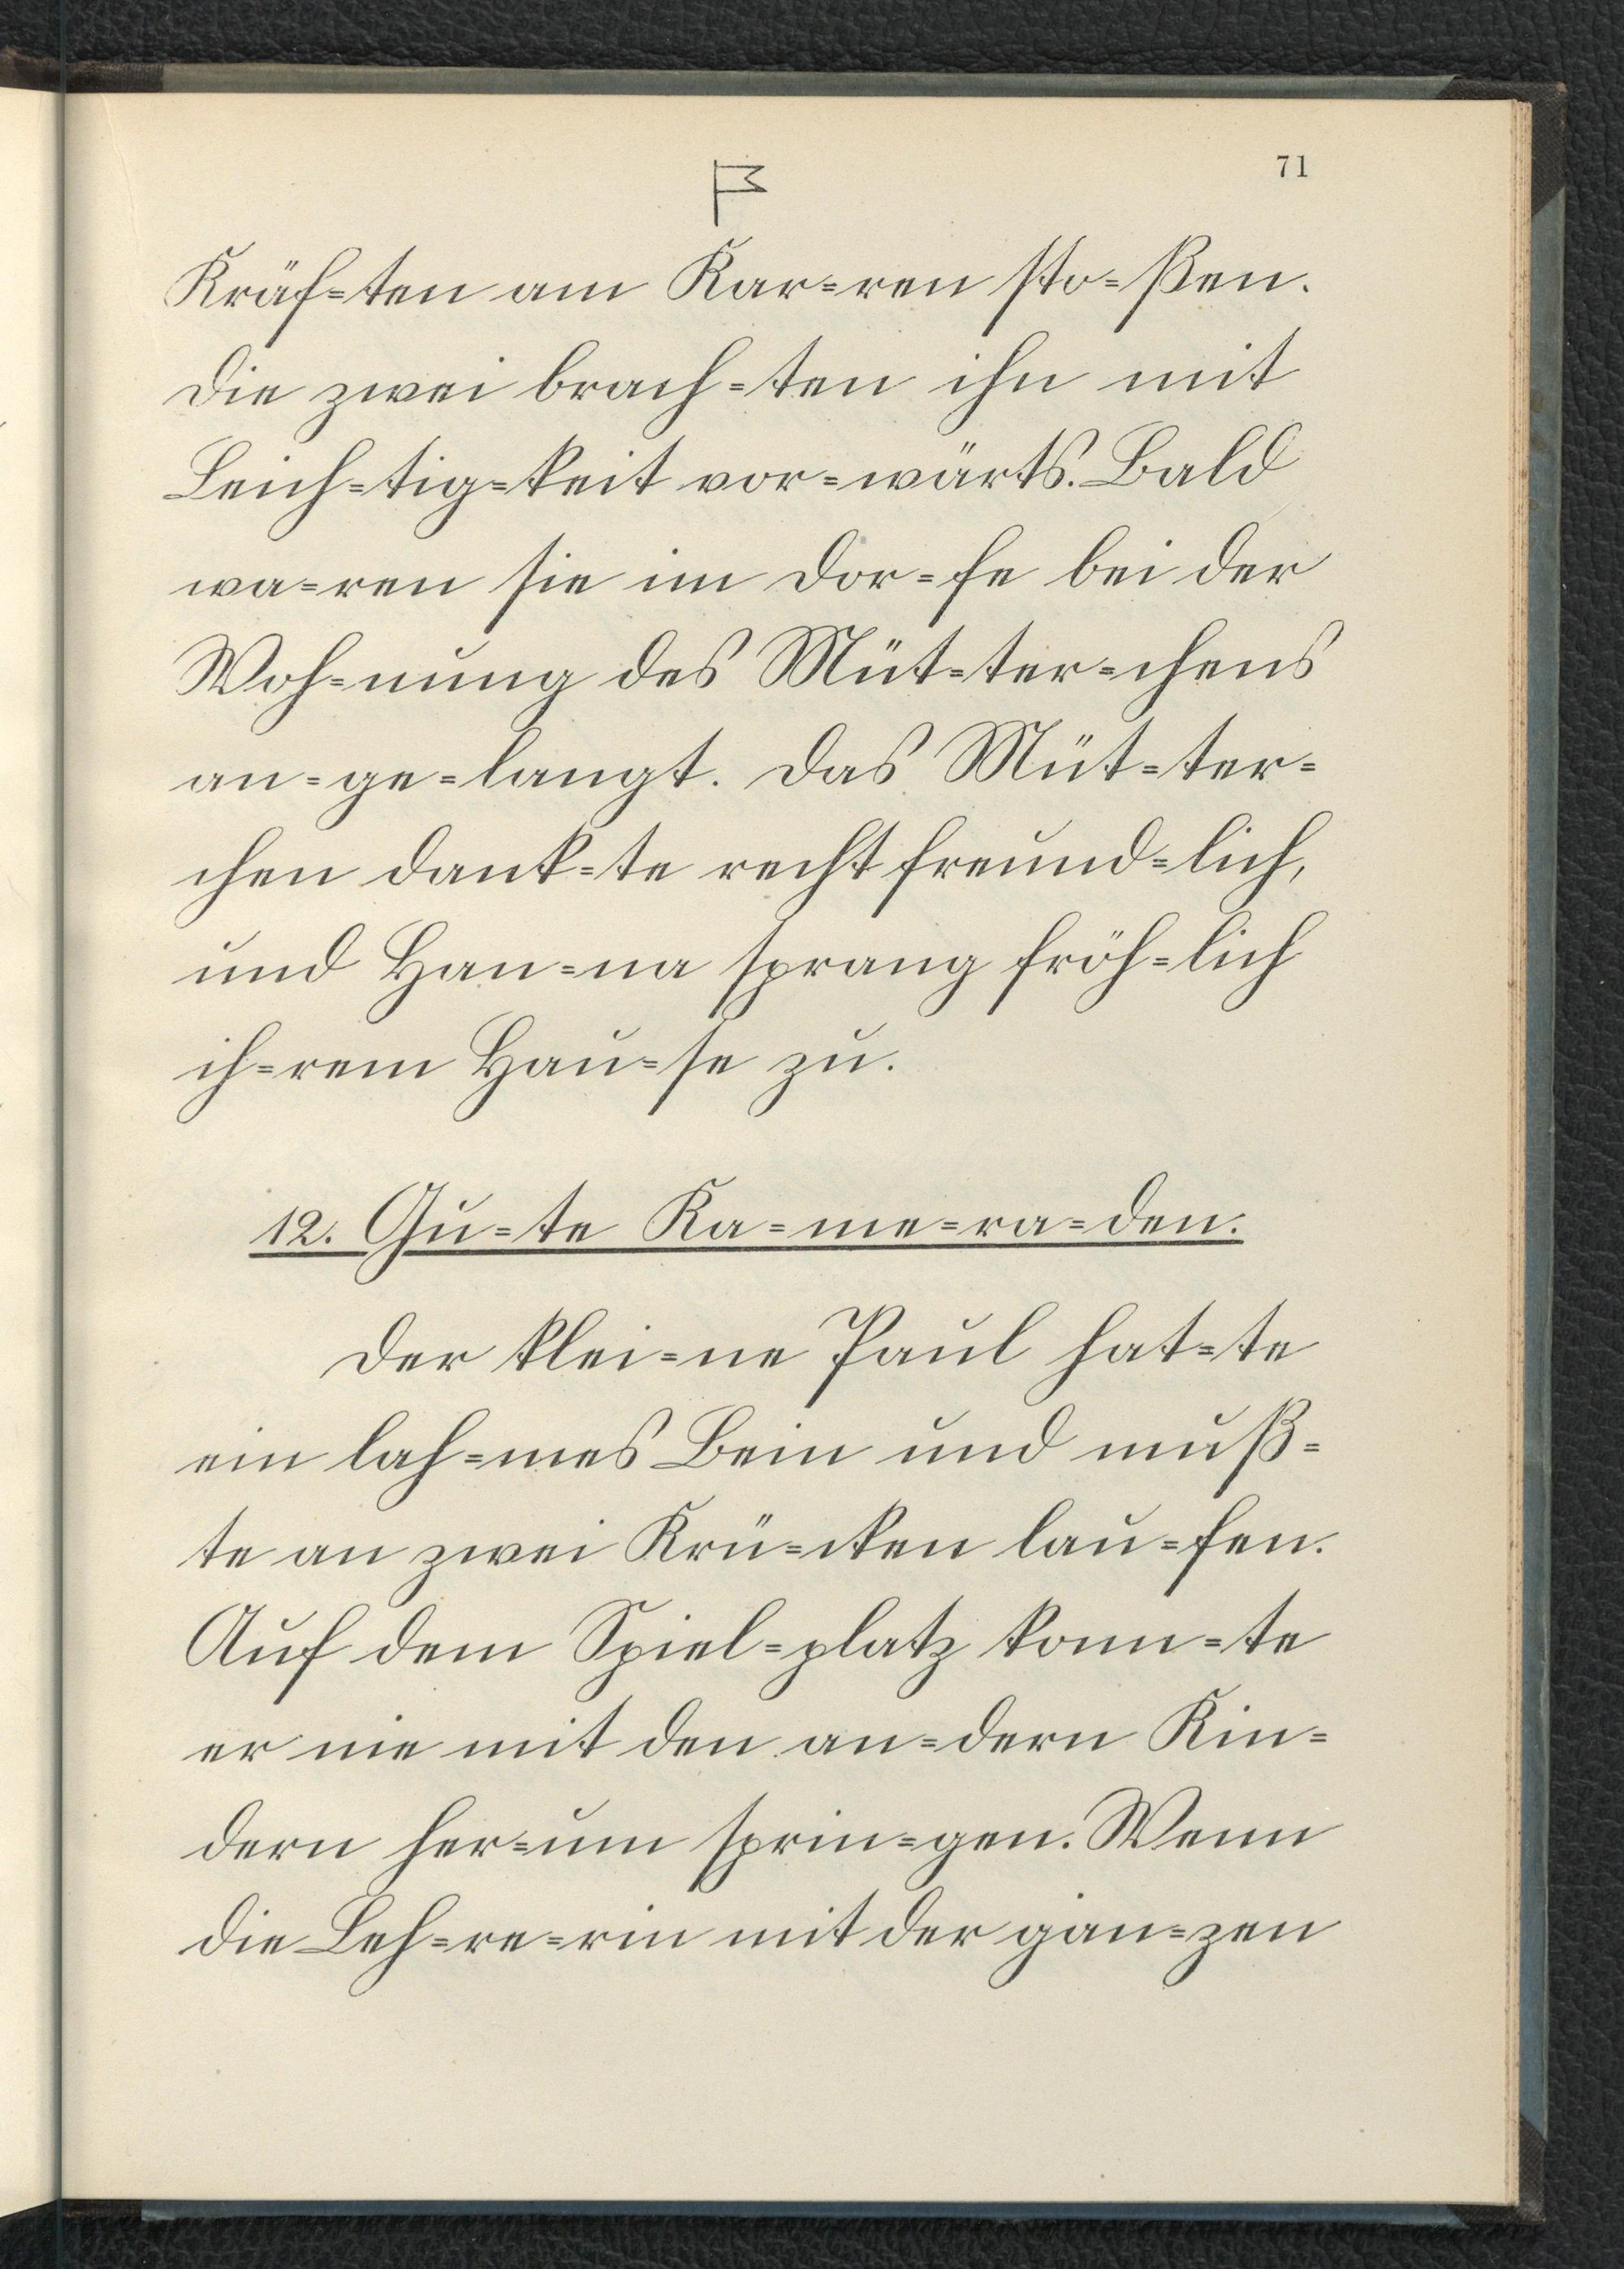 71
Kräf=ten am Kar=ren sto=ßen.
Die zwei brach=ten ihn mit
Leich=tig=keit vor=wärts. Bald
wa=ren sie im Dor=fe bei der
Woh=nung des Müt=ter=chens
an=ge=langt. Das Müt=ter=
chen dank=te recht freund=lich,
und Han=na sprang fröh=lich
ih=rem Hau=se zu.
12. Gu=te Ka=me=ra=den.
Der klei=ne Paul hat=te
ein lah=mes Bein und muß=
te an zwei Krü=cken lau=fen.
Auf dem Spiel=platz konn=te
er nie mit den an=dern Kin=
dern her=um sprin=gen. Wenn
die Leh=re=rin mit der gan=zen